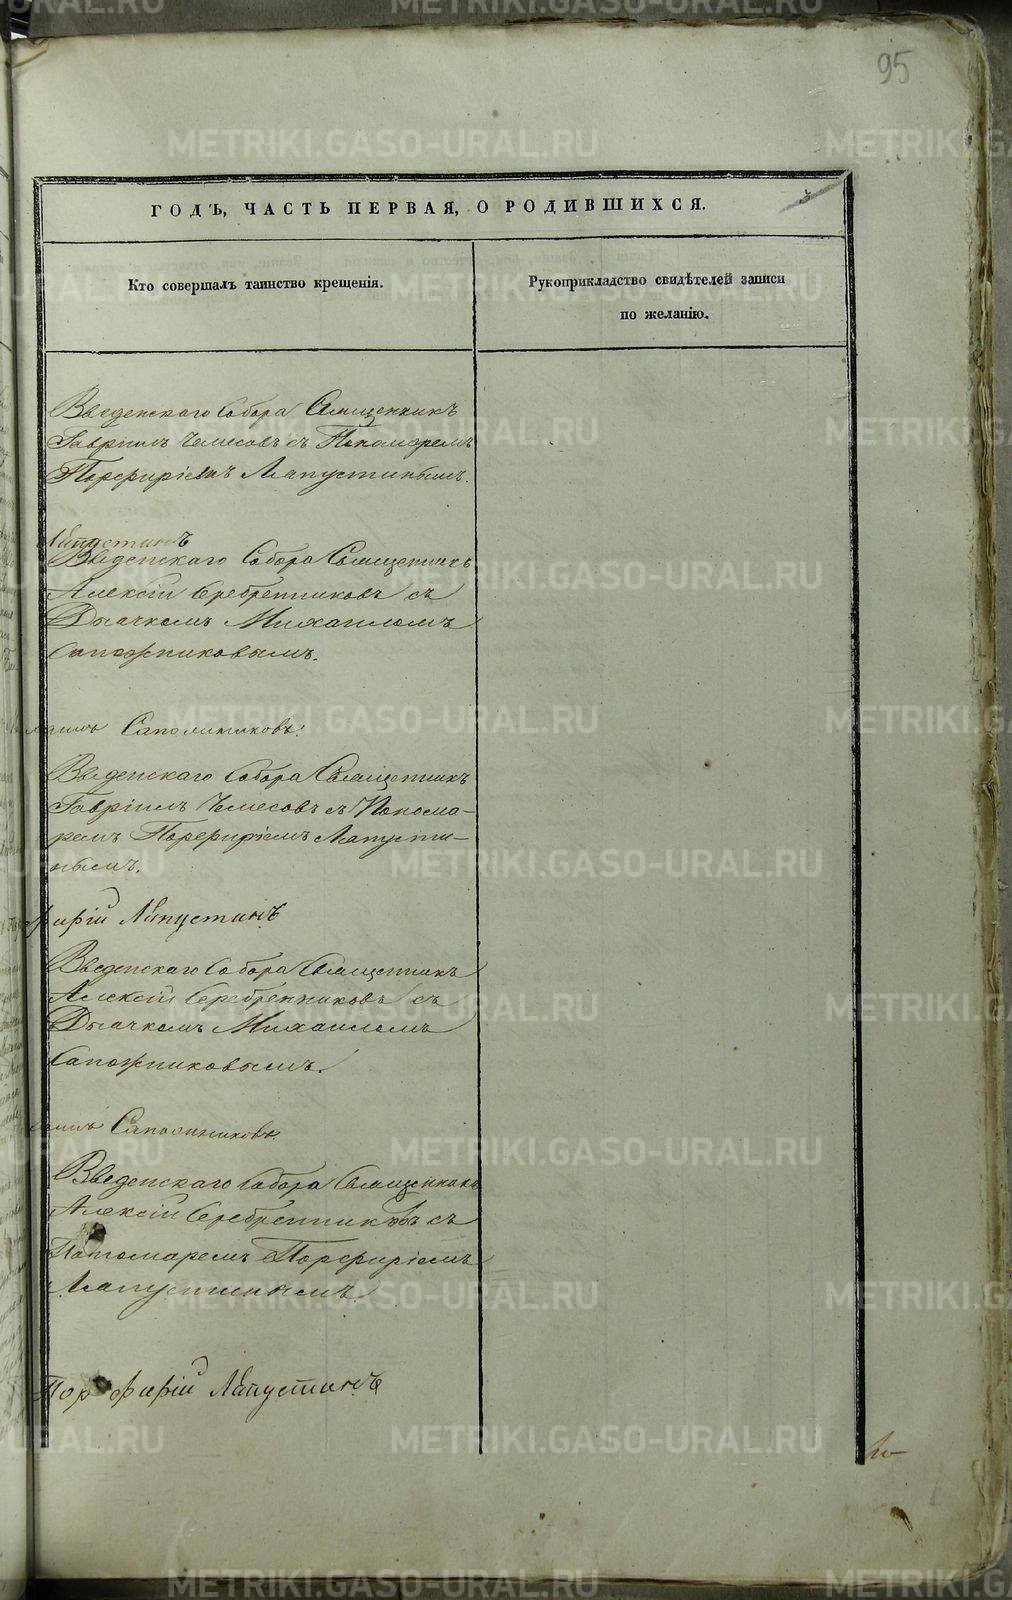 95
ГОДЪ, ЧАСТЬ ПЕРВАЯ, О РОДИВШИХСЯ.
Кто совершалъ таинство крещенія.
Рукоприкладство свидѣтелей записи
по желанію.
Введенскаго Собора Священникъ
Гавріилъ Чемесовъ съ Пономаремъ
Порфиріемъ Лапустинымъ.
Лапустинъ
Введенскаго Собора Священникъ
Алексій Серебренниковъ съ
Дьячкомъ Михаиломъ
Сапожниковымъ.
Сапожниковъ.
Введенскаго Собора Священникъ
Гавріилъ Чемесовъ съ Понома-
ремъ Порфиріемъ Лапусти-
нымъ.
фирій Лапустинъ
Введенскаго Собора Священникъ
Алексій Серебренниковъ съ
Дьячкомъ Михаиломъ
Сапожниковымъ.
Сапожниковъ
Введенскаго Собора Священникъ
Алексій Серебренниковъ съ
Пономаремъ Порфиріемъ
Лапустинымъ.
Порфирій Лапустинъ
METRIKI.GASO-URAL.RU